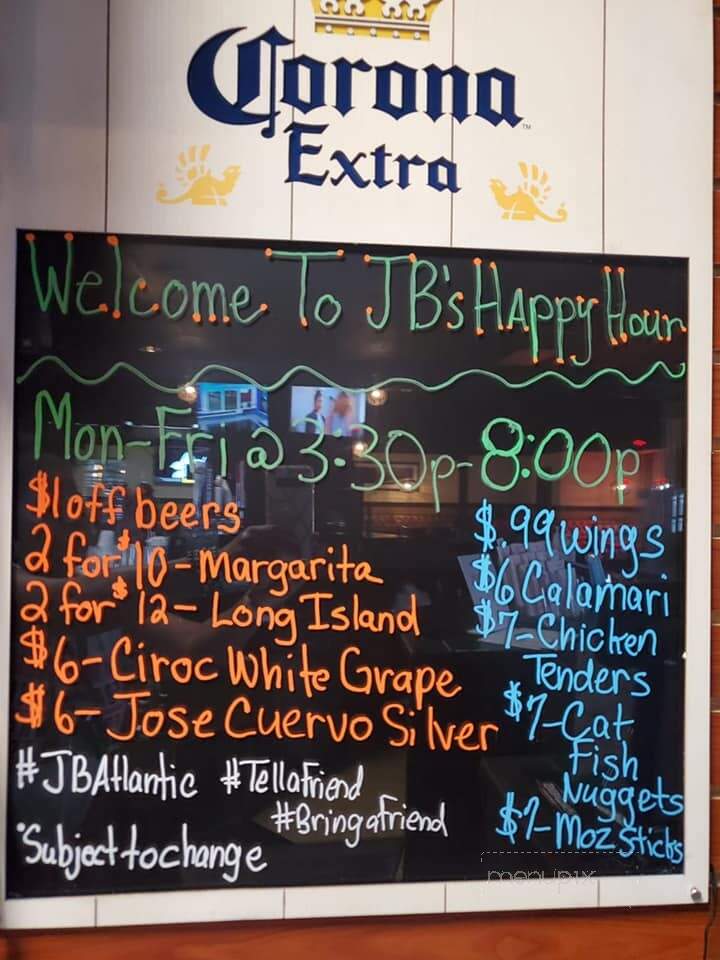 Corona
Extra
Welcome To JB's Happy Hour
Mon-Fri @ 3:30p-8:00p
$1 off beers
2 for $10 - Margarita
2 for $12 - Long Island
$6 - Ciroc White Grape
$6 - Jose Cuervo Silver
$.99 wings
$6 Calamari
$7 - Chicken
Tenders
$7 - Cat
Fish
Nuggets
$7 - Moz Sticks
#JBAtlantic #Tellafriend
#Bringafriend
*Subject to change
menupix